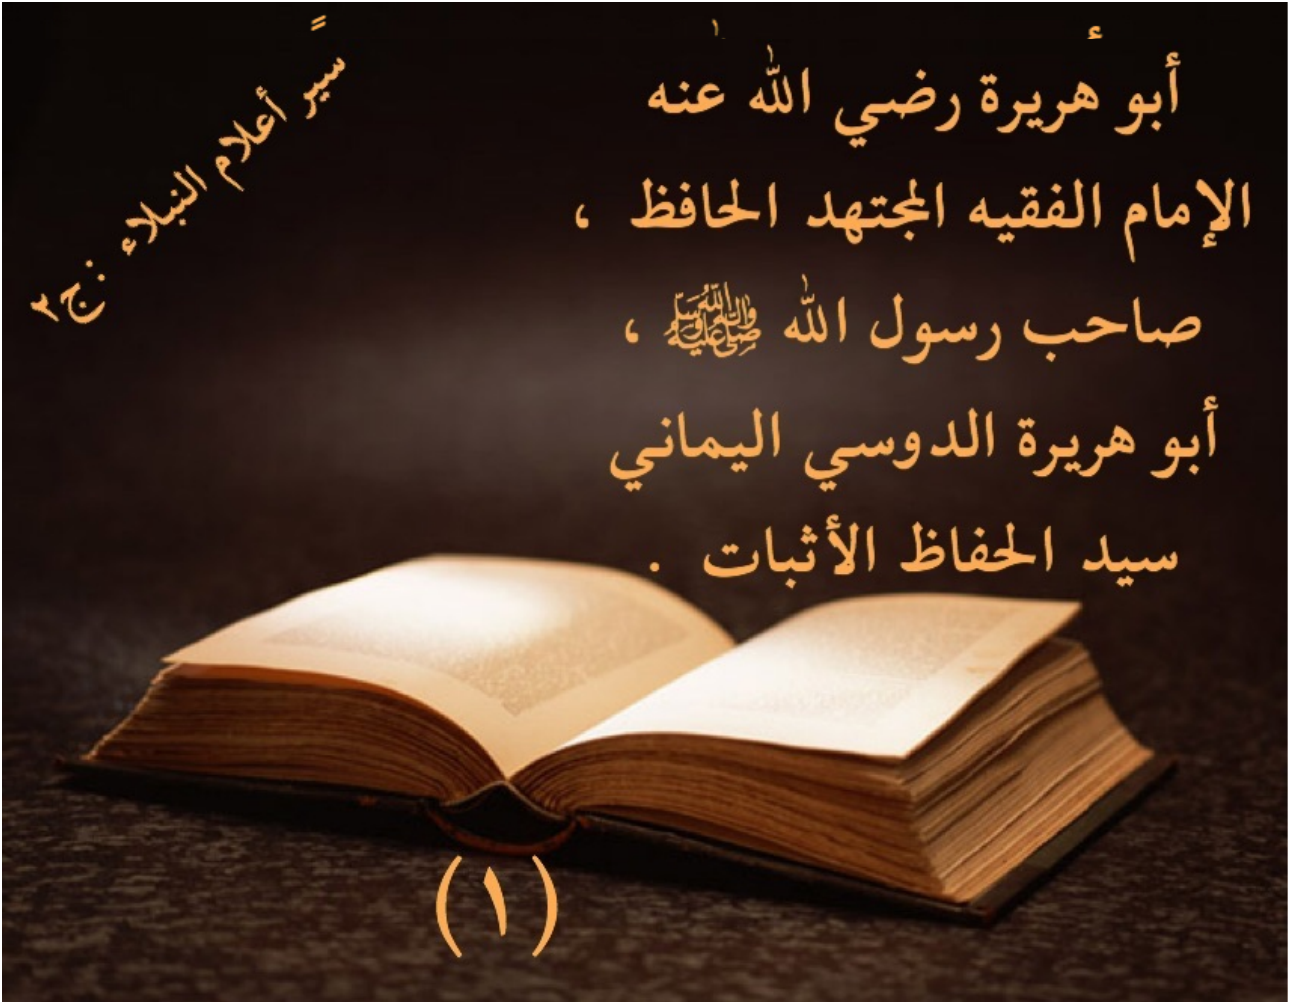 أبو هريرة رضي الله عنه
الإمام الفقيه المجتهد الحافظ ،
صاحب رسول الله ﷺ ،
أبو هريرة الدوسي اليماني
سيد الحفاظ الأثبات .
سير أعلام النبلاء :ج٢
(١)